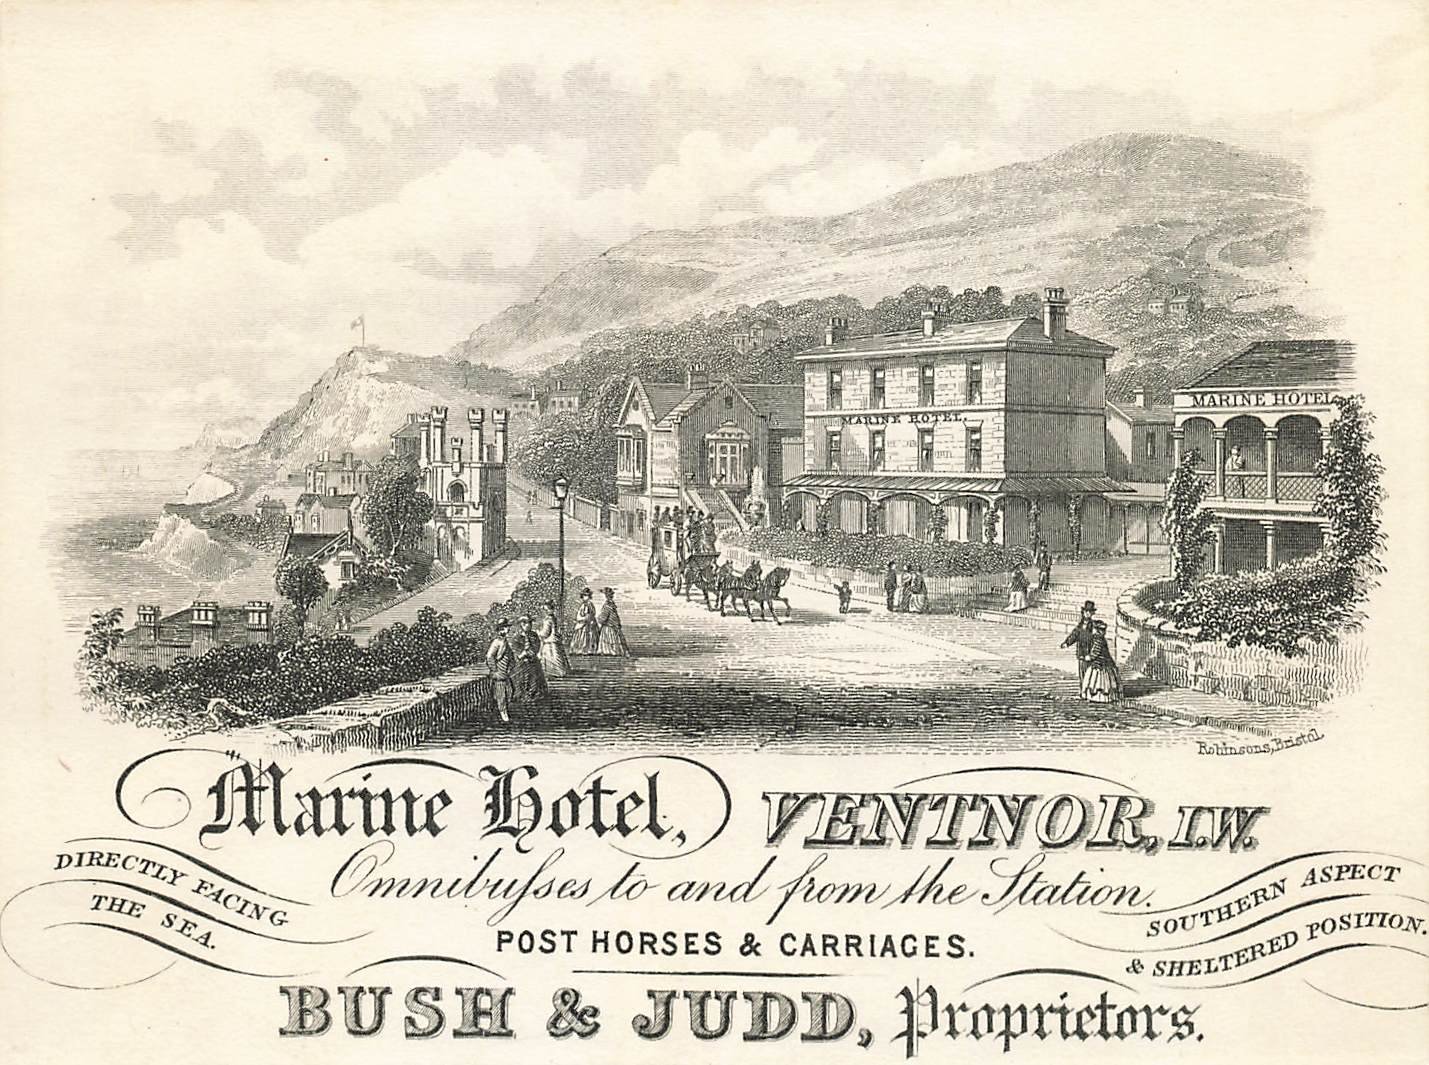 MARINE HOTEL.
MARINE HOTEL
Robinsons, Bristol
Marine Hotel, VENTNOR, I.W.
DIRECTLY FACING
THE SEA.
Omnibuſses to and from the Station.
SOUTHERN ASPECT
& SHELTERED POSITION.
POST HORSES & CARRIAGES.
BUSH & JUDD, Proprietors.